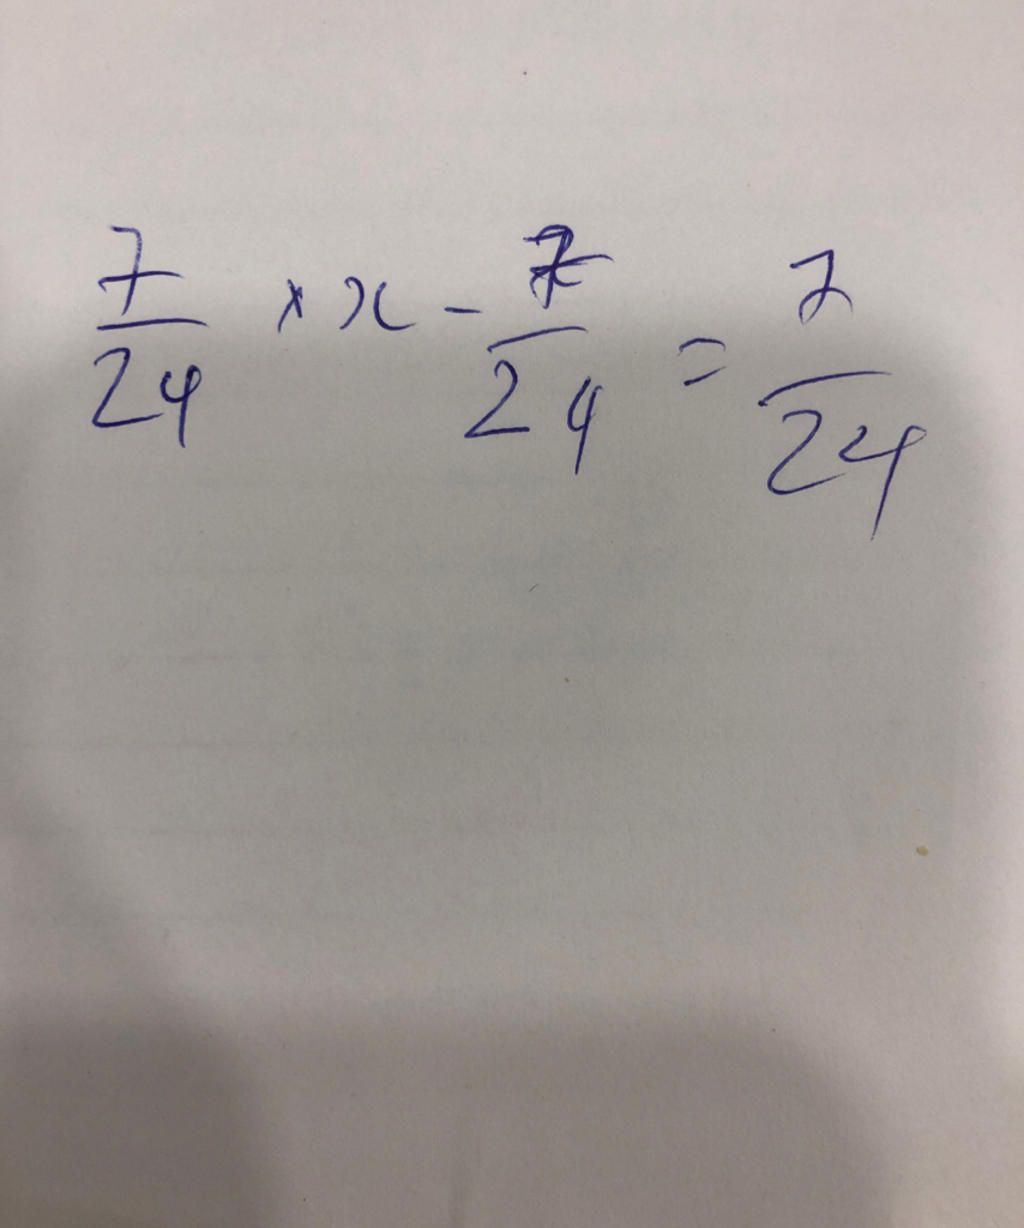 7/24 × x - 7/24 = 7/24